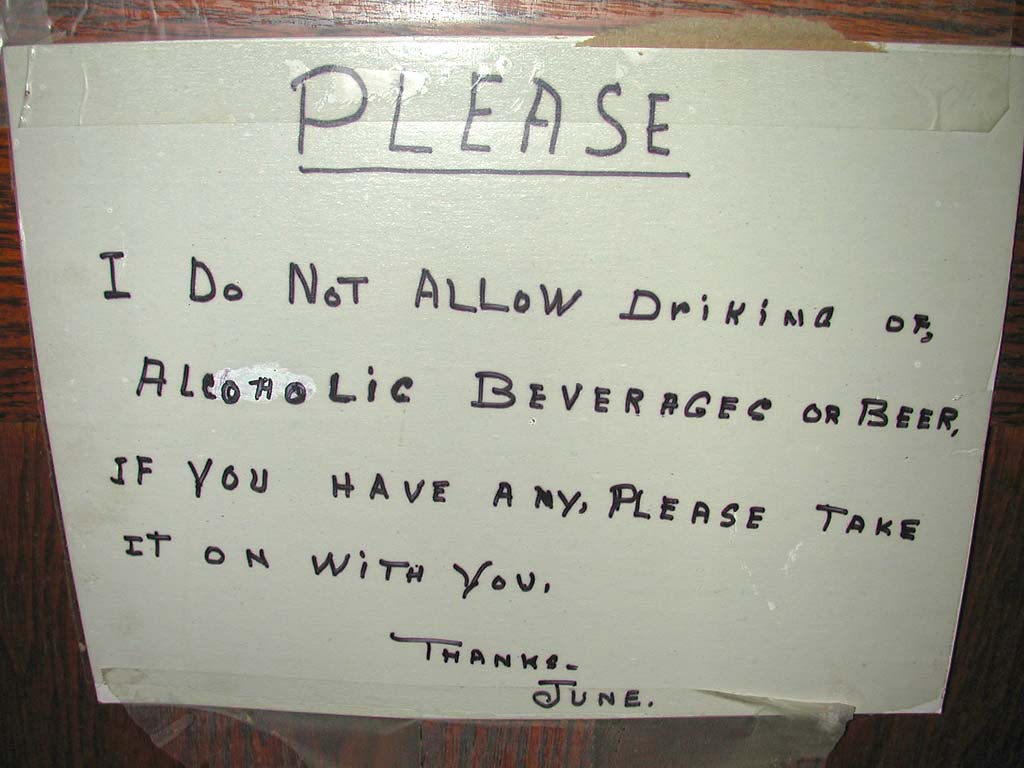 PLEASE
I Do NoT ALLOW DriKiNG OF,
ALCOHOLiC BEVERAGES OR BEER,
IF YOU HAVE ANY, PLEASE TAKE
IT ON WiTH YOU.
THANKS-
JUNE.